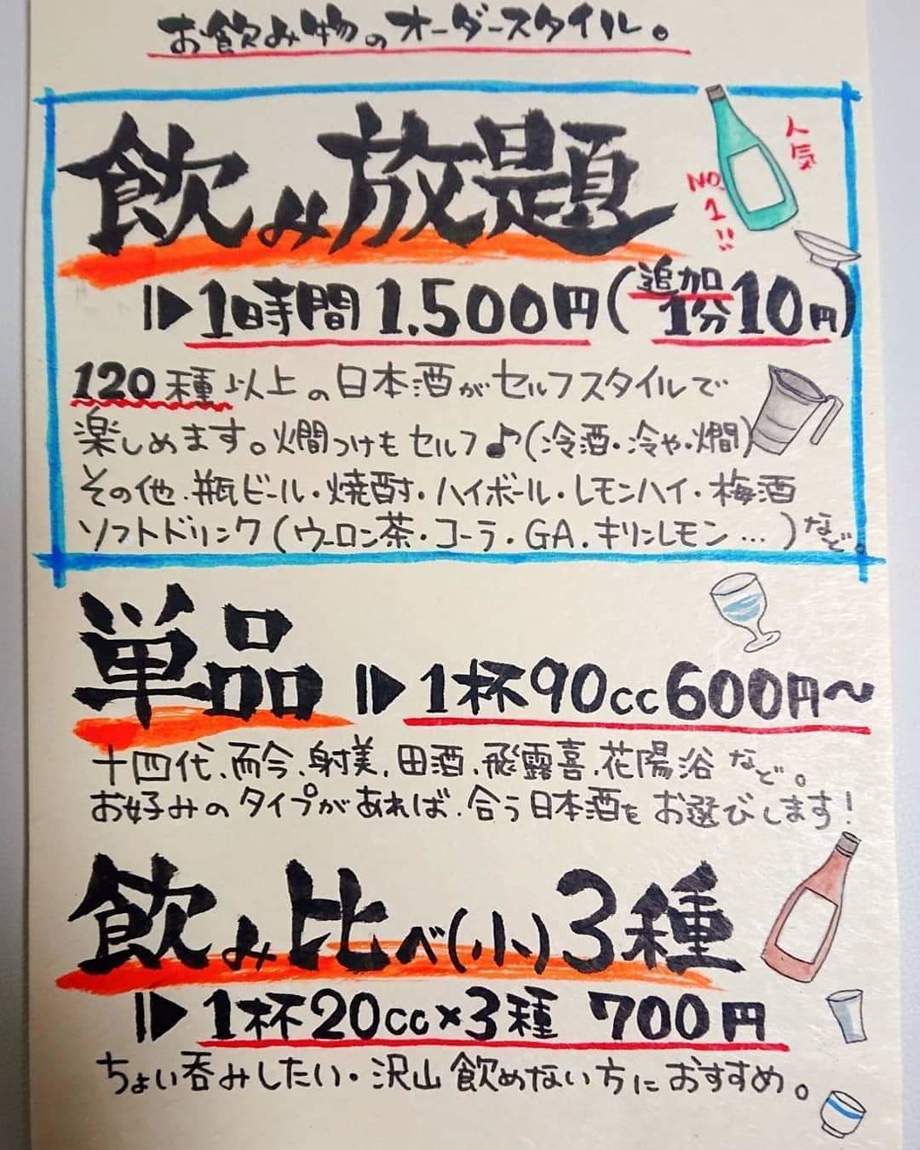 お飲み物のオーダースタイル。
飲み放題
人気
NO.1!!
1時間1.500円(追加1分10円)
120種以上の日本酒がセルフスタイルで
楽しめます。燗つけもセルフ♪(冷酒・冷や・燗)
その他.瓶ビール・焼酎・ハイボール・レモンハイ・梅酒
ソフトドリンク(ウーロン茶・コーラ・GA.キリンレモン…)など。
単品
1杯90cc600円〜
十四代、而今、射美、田酒、飛露喜、花陽浴など。
お好みのタイプがあれば、合う日本酒をお選びします!
飲み比べ(小)3種
1杯20cc×3種 700円
ちょい呑みしたい・沢山飲めない方におすすめ。